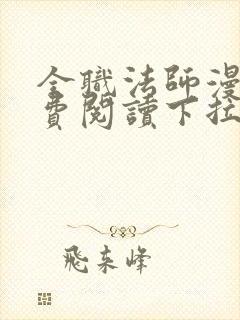 全職法師漫
費閱讀下拉
飛來峰